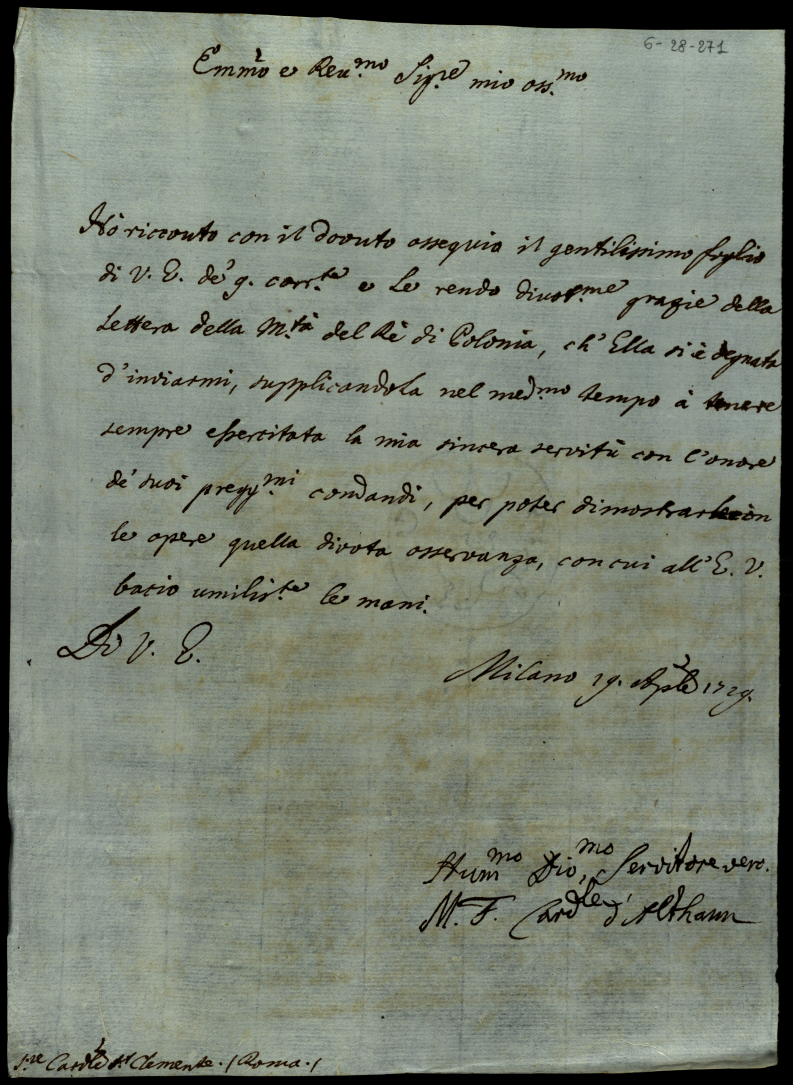 6-28-271
Emmo e Reu.mo Sig.re mio oss.mo
Hò riceuuto con il douuto ossequio il gentilissimo foglio
di V. E. de' 9. corr.te e Le rendo diuot.me grazie della
Lettera della M.tà del Rè di Polonia, ch' Ella si è degnata
d'inviarmi, supplicandola nel med.mo tempo à tenere
sempre essercitata la mia sincera servitù con l'onore
de' suoi pregg.mi comandi, per poter dimostrarle in
le opere quella divota osservanza, con cui all' E. V.
bacio umilis.te le mani.
Di V. E.
Milano 19. Aple 1719.
Hum.mo Diu.mo Servitore vero.
M. F. Card.le d'Althann
S.re Cardle S. Clemente. (Roma.)